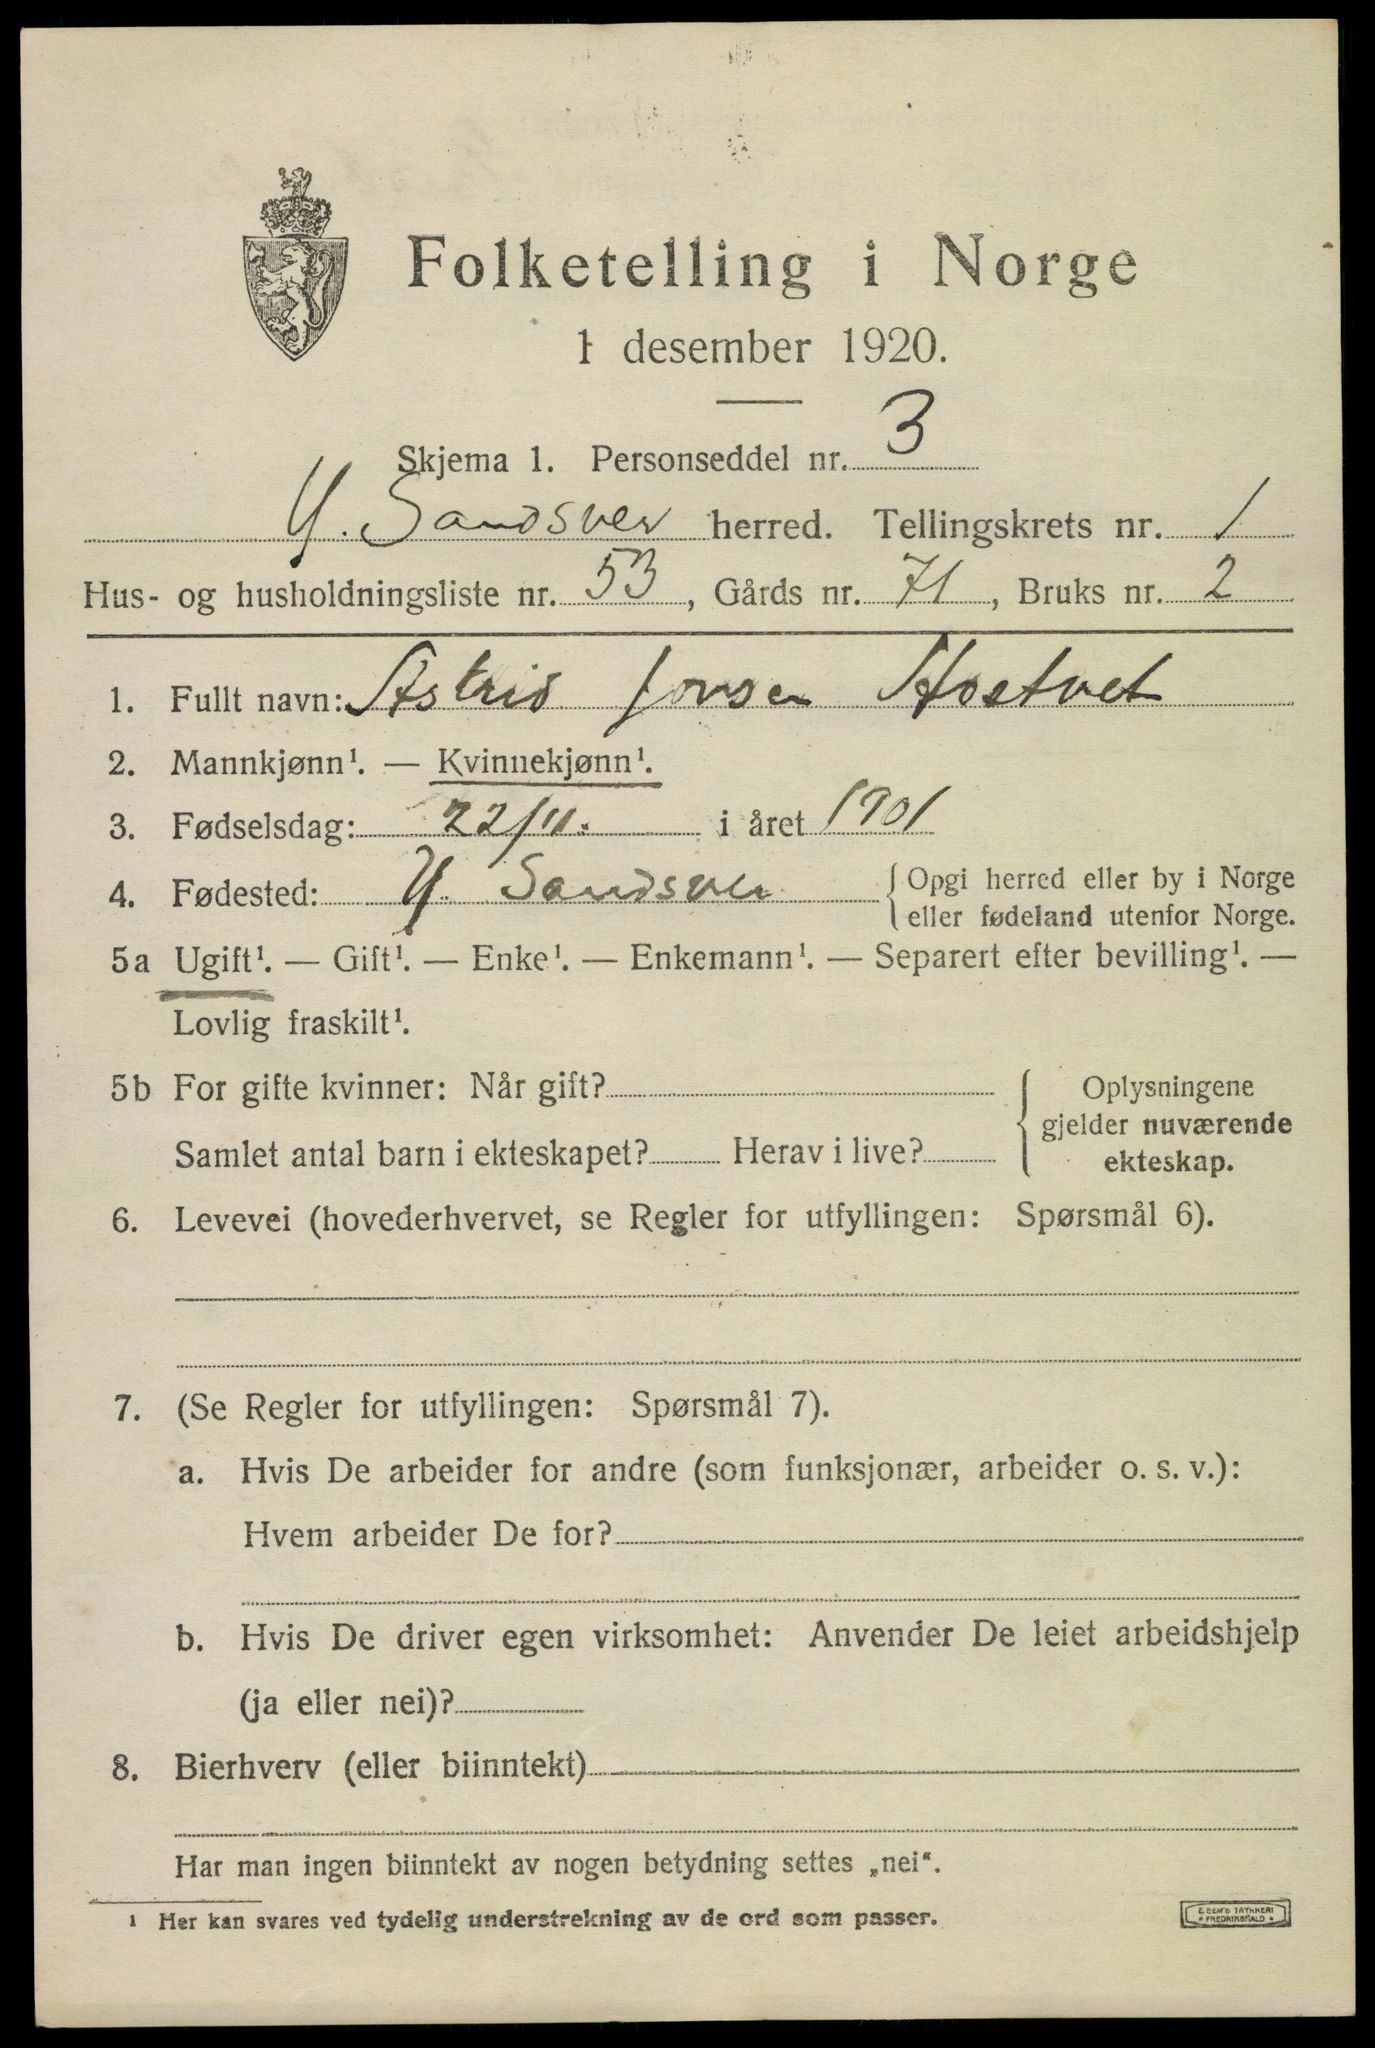 Folketelling i Norge
1 desember 1920.
Skjema 1. Personseddel nr. 3
Y. Sandsver herred. Tellingskrets nr. 1
Hus- og husholdningsliste nr. 53, Gårds nr. 71, Bruks nr. 2
1. Fullt navn: Astrid Jonsen Hostvet
2. Mannkjønn¹. — Kvinnekjønn¹.
3. Fødselsdag: 22/11. i året 1901
4. Fødested: Y. Sandsver { Opgi herred eller by i Norge
eller fødeland utenfor Norge.
5a Ugift¹. — Gift¹. — Enke¹. — Enkemann¹. — Separert efter bevilling¹. —
Lovlig fraskilt¹.
5b For gifte kvinner: Når gift? { Oplysningene
gjelder nuværende
Samlet antal barn i ekteskapet? Herav i live? ekteskap.
6. Levevei (hovederhvervet, se Regler for utfyllingen: Spørsmål 6).
7. (Se Regler for utfyllingen: Spørsmål 7).
a. Hvis De arbeider for andre (som funksjonær, arbeider o. s. v.):
Hvem arbeider De for?
b. Hvis De driver egen virksomhet: Anvender De leiet arbeidshjelp
(ja eller nei)?
8. Bierhverv (eller biinntekt)
Har man ingen biinntekt av nogen betydning settes „nei“.
¹ Her kan svares ved tydelig understrekning av de ord som passer.
E SEM'S TRYKKERI
* FREDRIKSHALD *